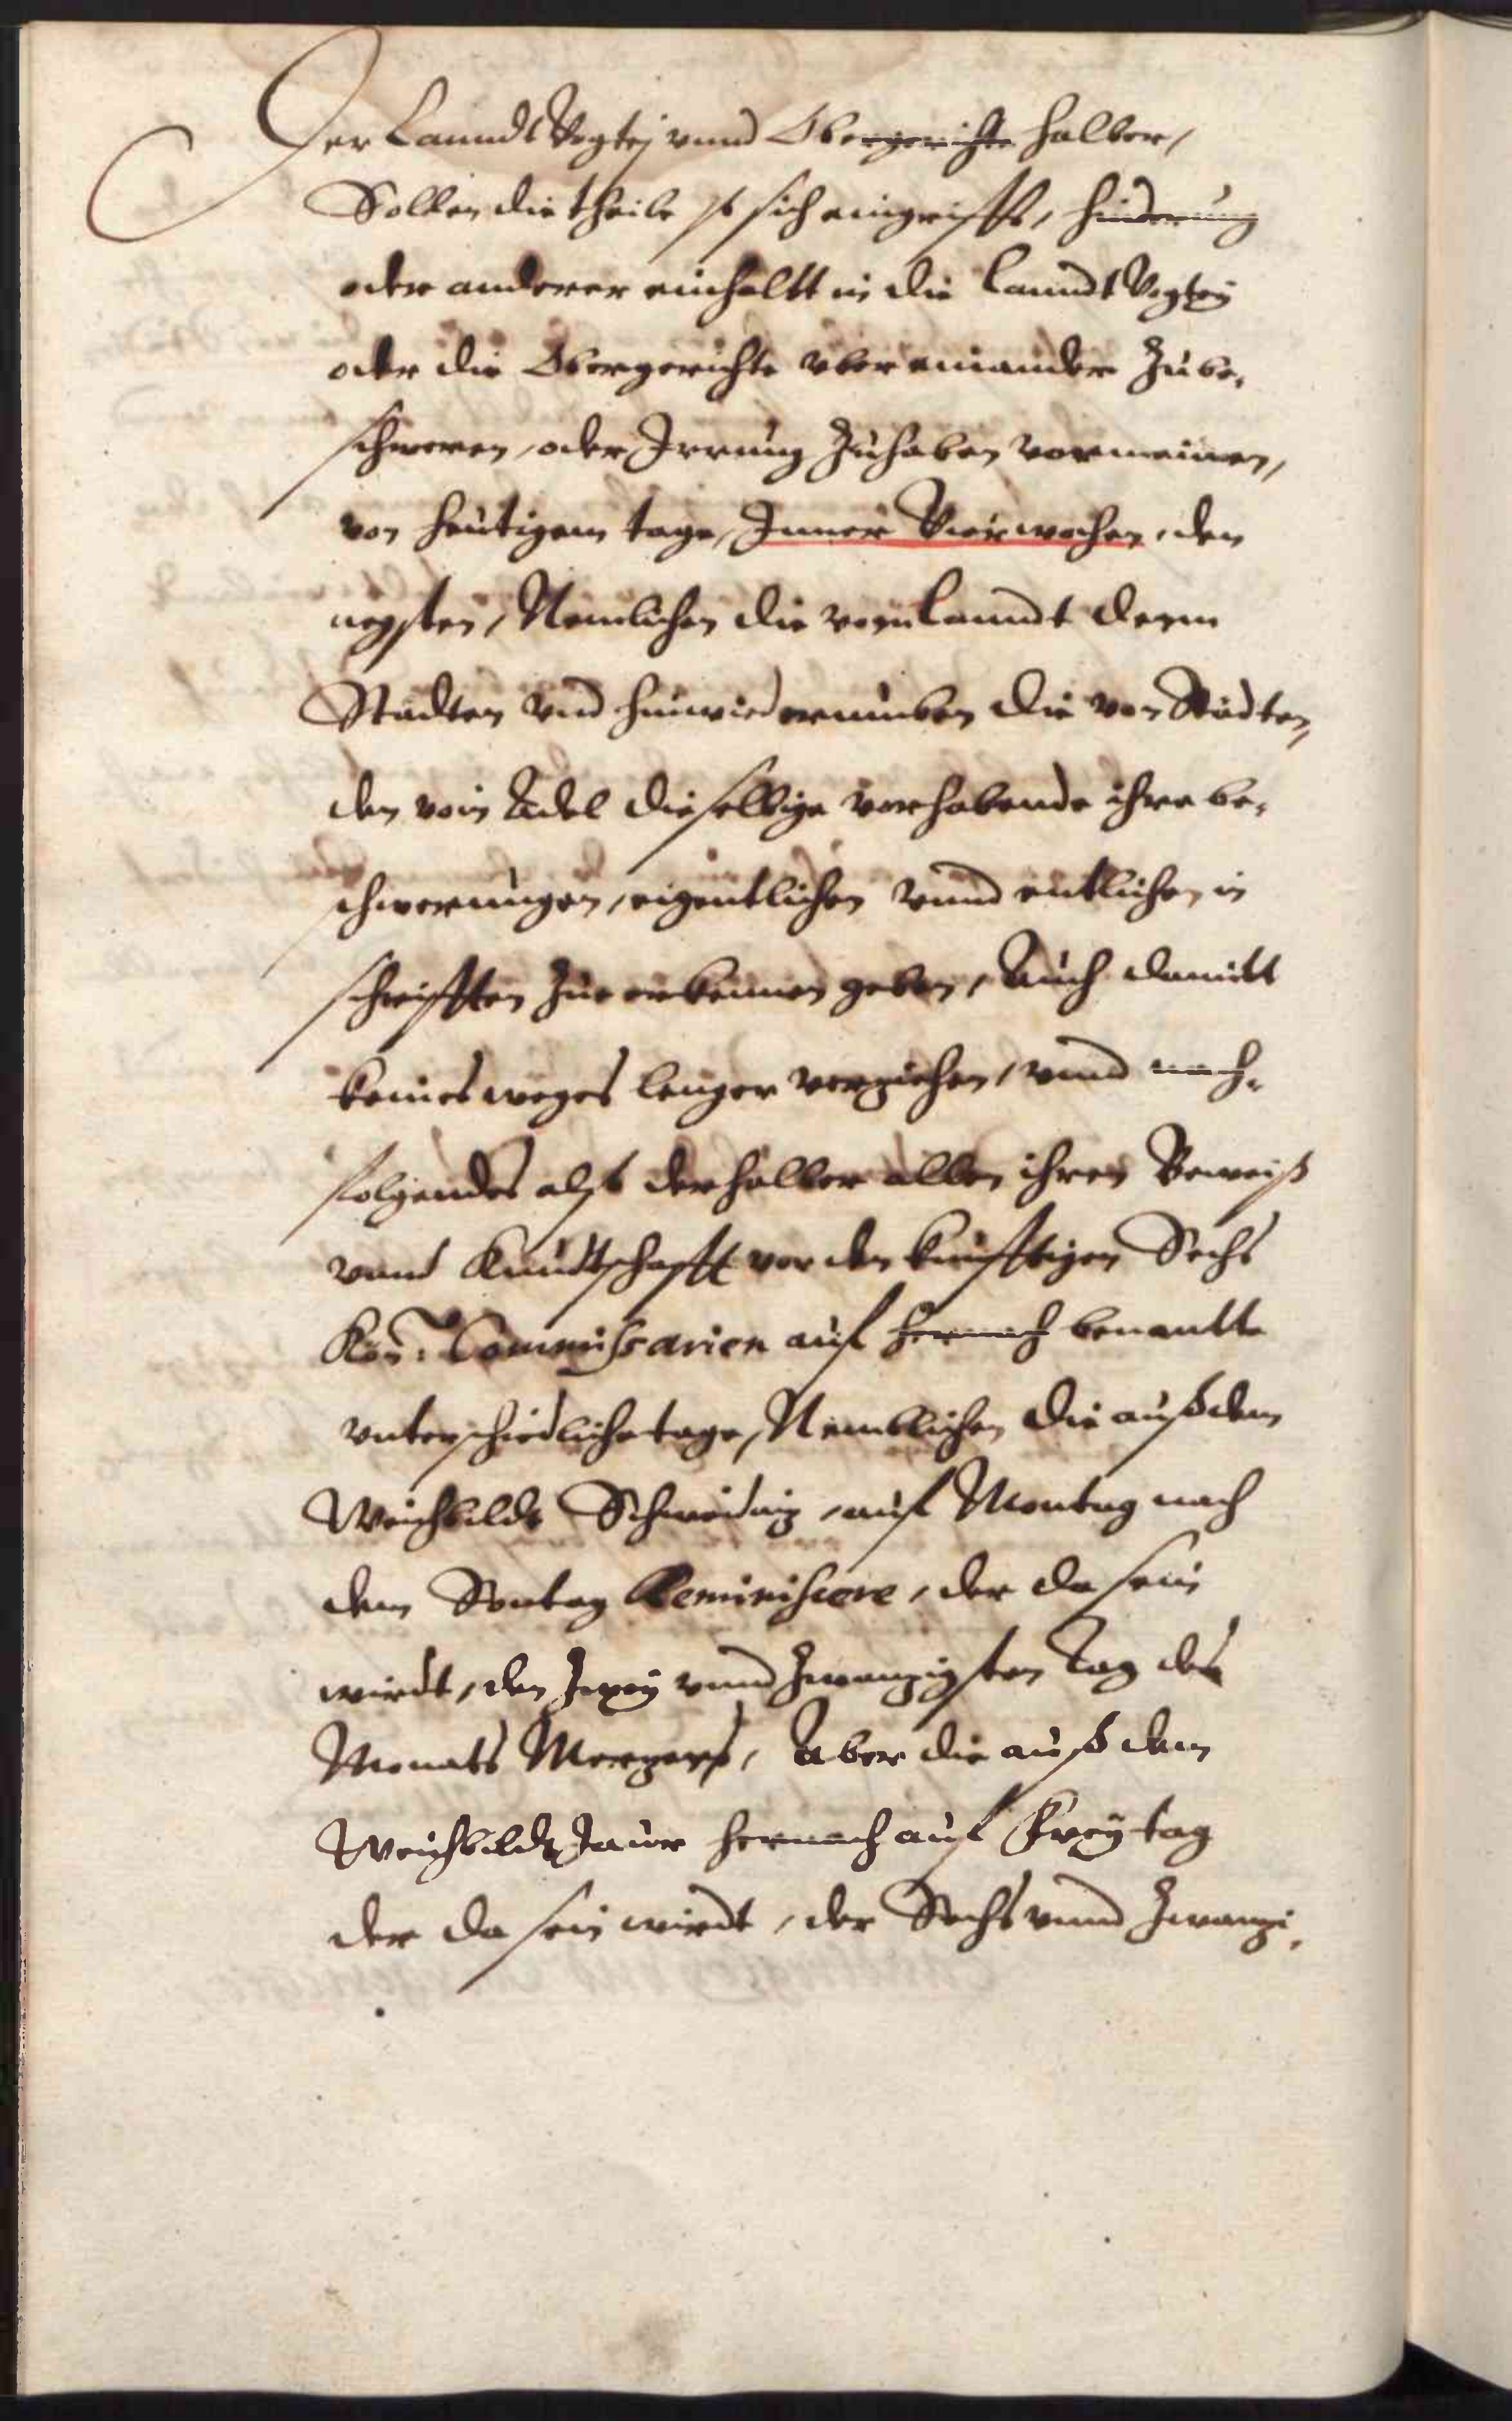 Der Lanndt Vogtej vnnd Obergerichte halber,
Sollen die theile so sich eingriffs, hinderung
oder anderer einhaltt in die Lanndt Vogtey
oder die Obergerichte vber einander Zube,
schweren, oder Irrung Zuhaben vormeinen,
von heutigem tage, Inner Vier wochen, den
negsten, Nemlichen die vom Lanndt denn
Stadten vnd hinwiederumben die von Städten,
den vom Adel dieselbige vorhabende ihre be,
schwerungen, eigentlichen vnnd entlichen in
schrifften Zue erkennen geben, Auch damitt
keines weges lenger verziehen, vnnd nach,
folgendes alsb derhalber allen ihren Beweiß
vnnd Kundtschafft vor den kunfftigen Sechs
Kön: Commissarien auf hernach benantte
vnterschiedliche tage, Nemblichen die auß dem
Weichbilde Schweidnig, auf Montag nach
dem Sontag Reminiscere, der da sein
wirdt, den Zwey vnnd Zwanzigsten Tag des
Monats Mertzens, Aber die auß dem
Weichbilde Jaur hernach auf Freytag
der da sein wirdt, der Sechs vnnd Zwanzi,